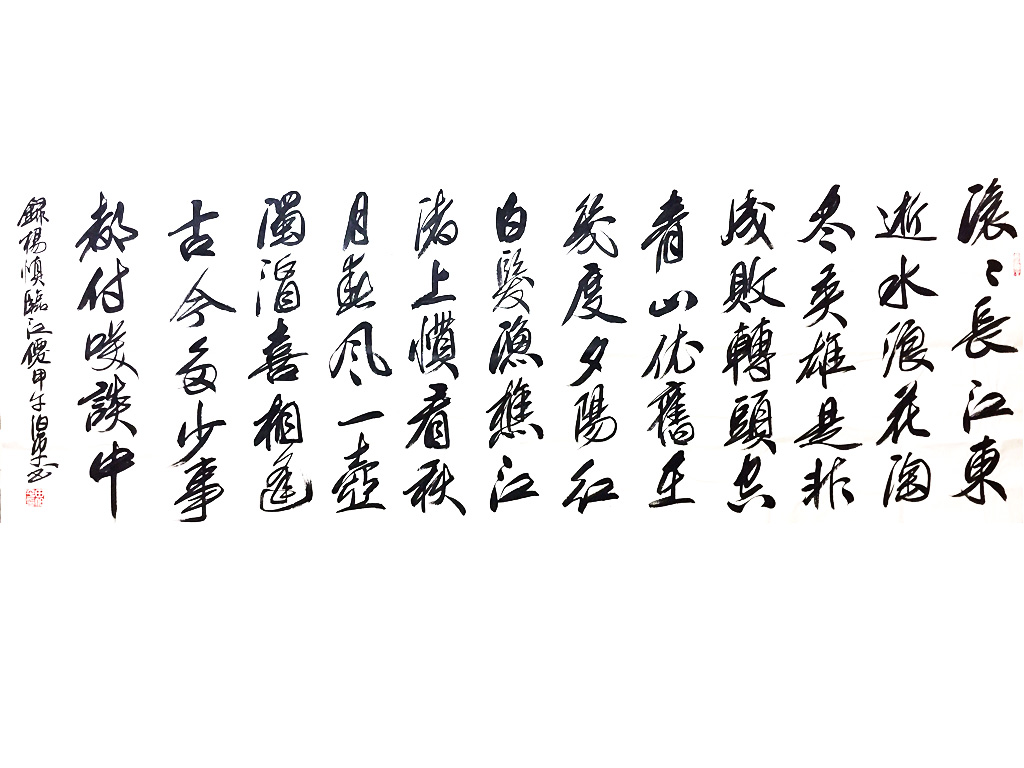 滚〻長江東
逝水浪花淘
尽英雄是非
成敗轉頭空
青山依舊在
幾度夕陽紅
白髮漁樵江
渚上慣看秋
月春風一壺
濁酒喜相逢
古今多少事
都付咲談中
錄楊慎臨江僊甲午書